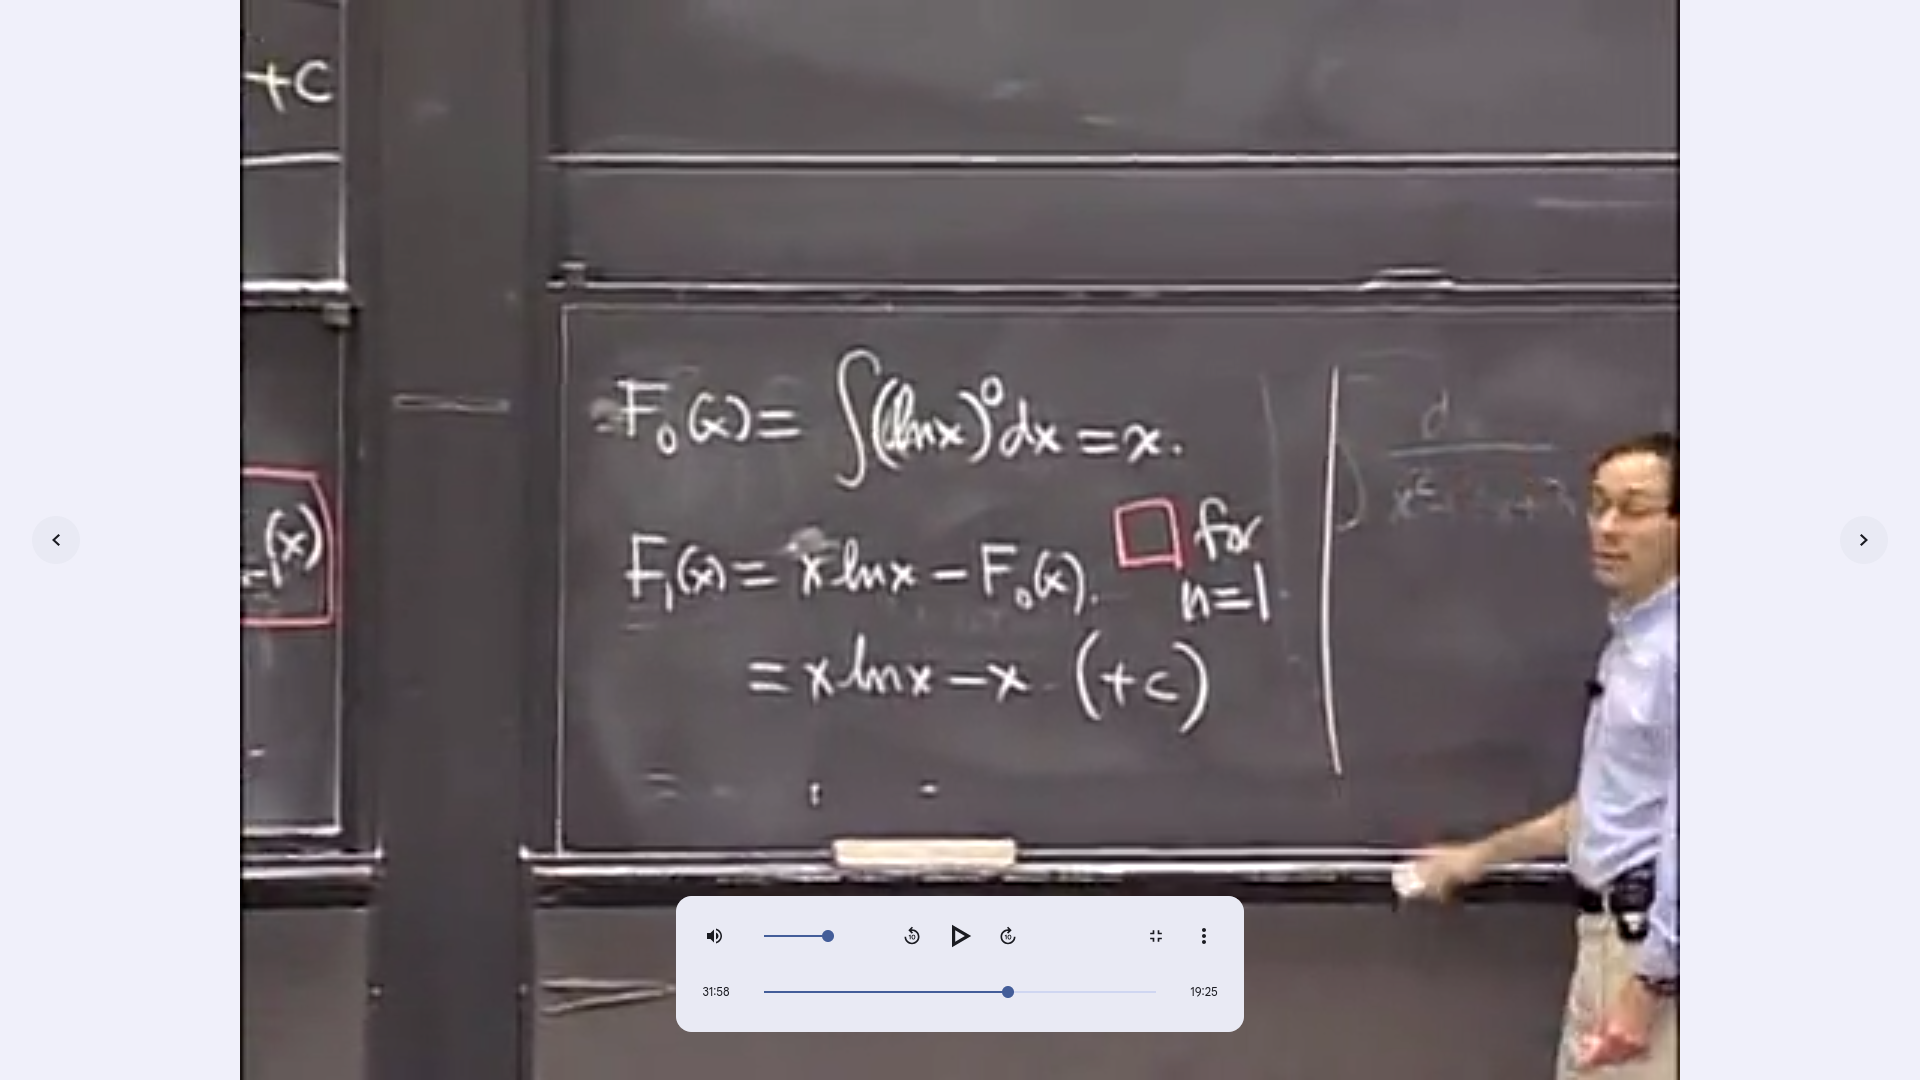 +c
(x)
F₀(x) = ∫(ln x)⁰ dx = x.
F₁(x) = x ln x − F₀(x). □ for
n=1
= x ln x − x (+c)
10
10
31:58
19:25